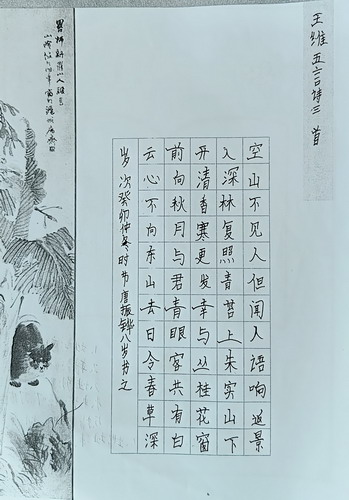 王维五言诗三首
空山不见人但闻人语响返景
入深林复照青苔上朱实山下
开清香寒更发幸与丛桂花窗
前向秋月与君青眼客共有白
云心不向东山去日令春草深
岁次癸卯仲冬时节唐振铧八岁书之